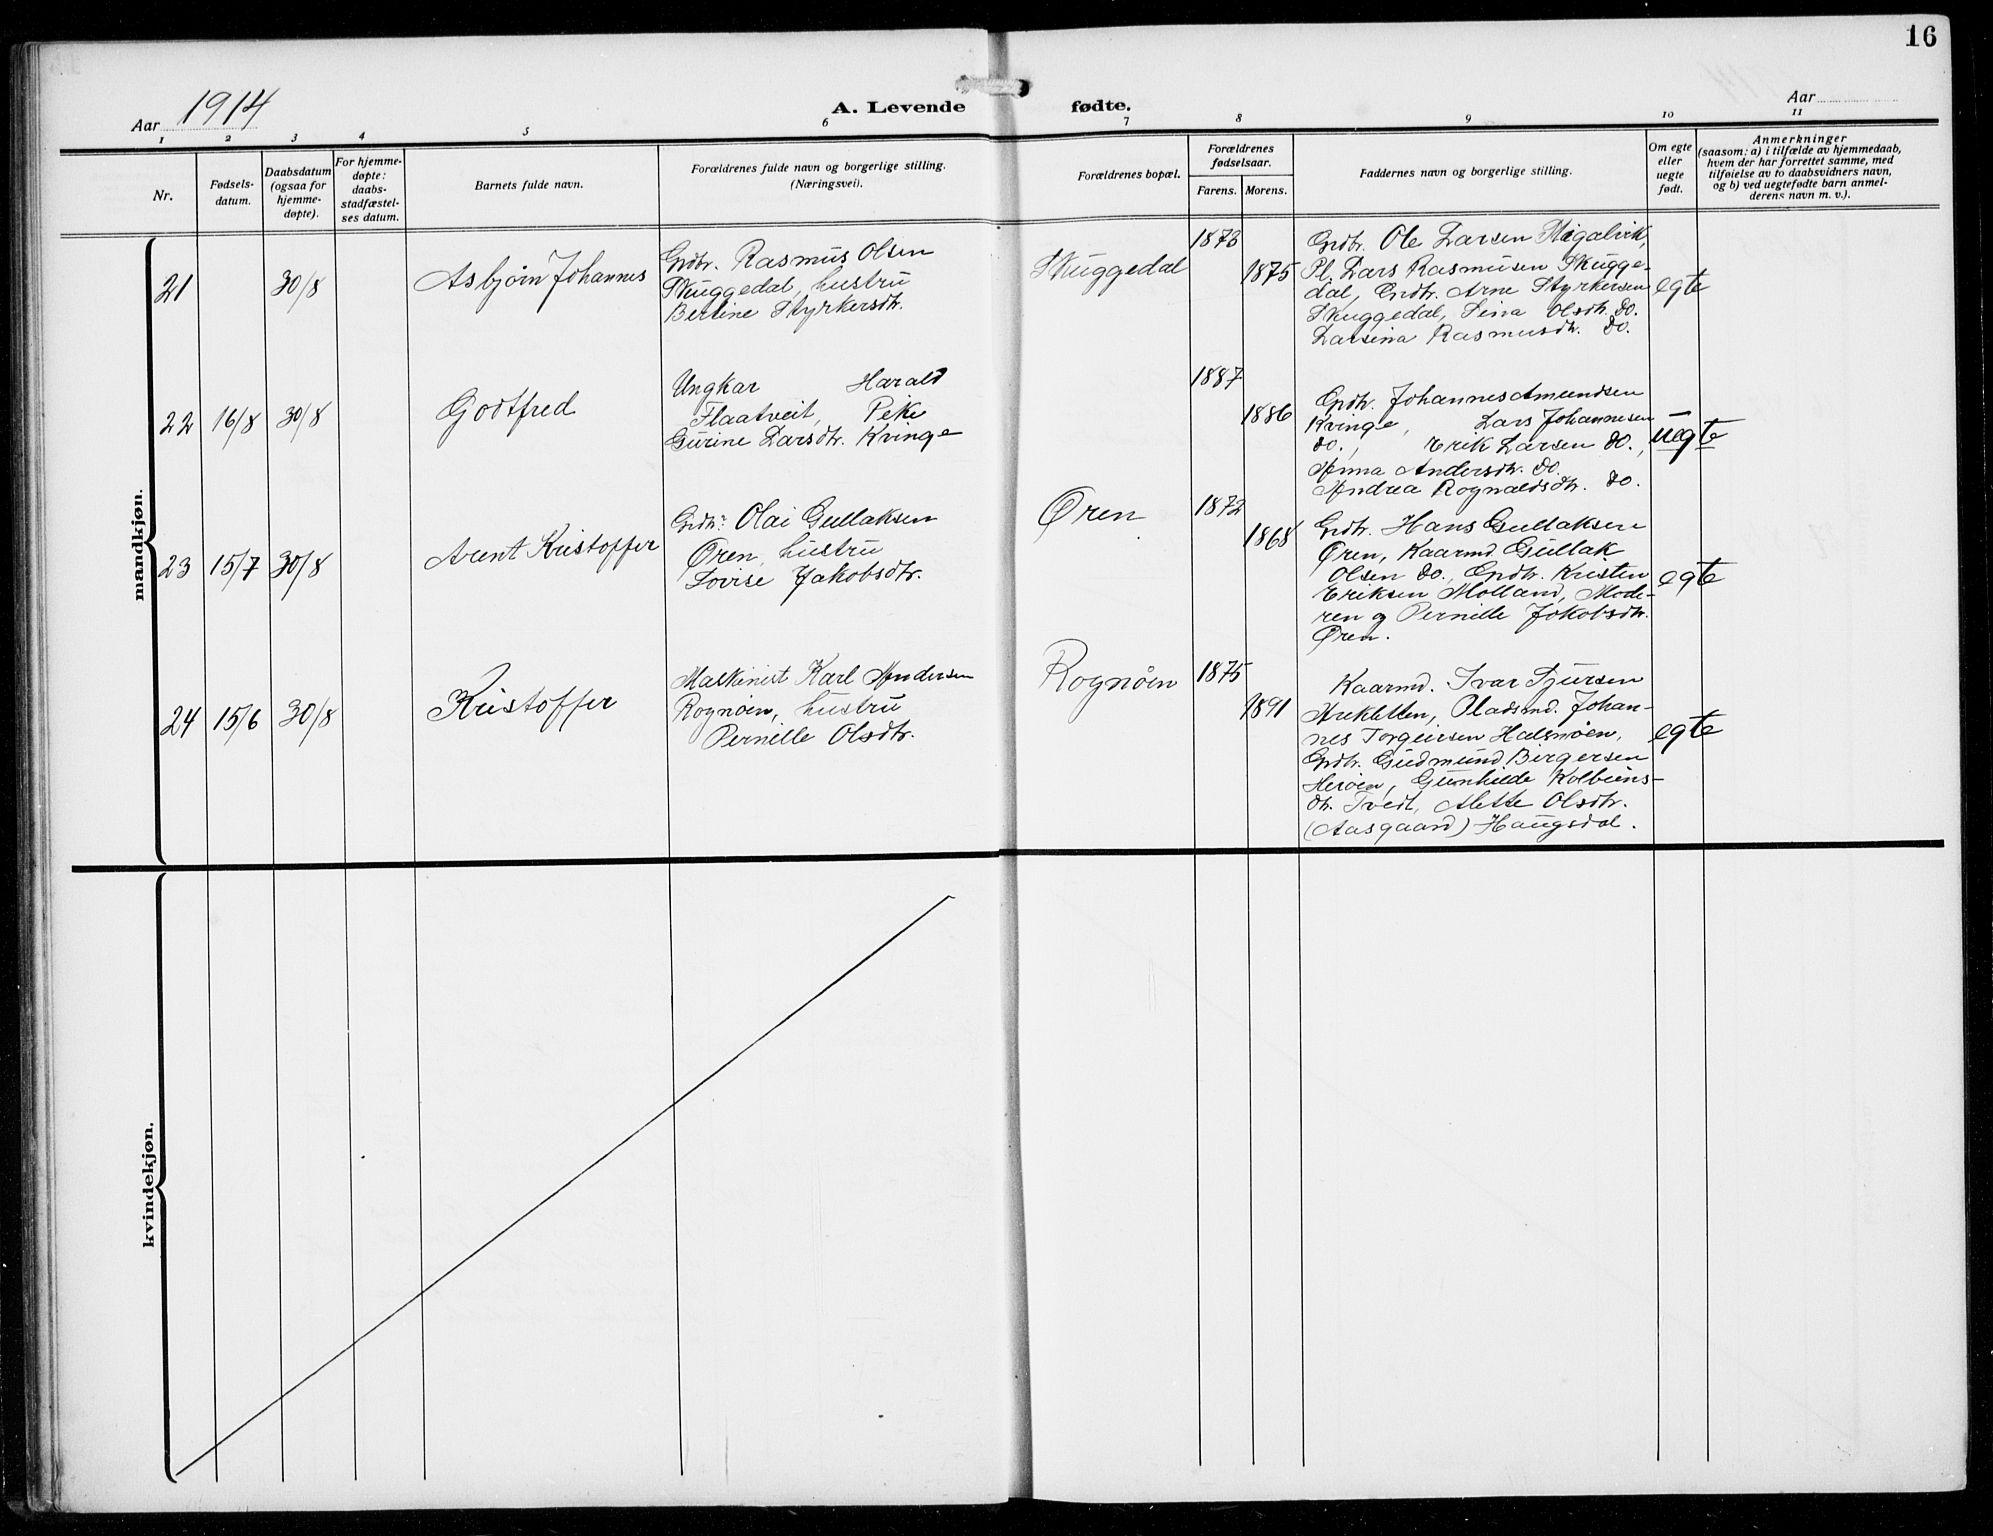 16
Aar 1914
A. Levende fødte.
Aar
1 2 3 4 5 6 7 8 9 10 11
Nr.
Fødsels-
datum.
Daabsdatum
(ogsaa for
hjemme-
døpte).
For hjemme-
døpte:
daabs-
stadfæstel-
ses datum.
Barnets fulde navn.
Forældrenes fulde navn og borgerlige stilling.
(Næringsvei).
Forældrenes bopæl.
Forældrenes
fødselsaar.
Farens. Morens.
Faddernes navn og borgerlige stilling.
Om egte
eller
uegte
født.
Anmerkninger
(saasom: a) i tilfælde av hjemmedaab,
hvem der har forrettet samme, med
tilføielse av to daabsvidners navn,
og b) ved uegtefødte barn anmel-
derens navn m. v.).
mandkjøn.
21
30/8
Asbjørn Johannes
Grdbr. Rasmus Olsen
Skuggedal, hustru
Bertine Styrkersdtr.
Skuggedal
1873
1875
Grdbr. Ole Larsen
Pl. Lars Rasmusen Skugge-
dal, Grdbr. Arne Styrkersen
Skuggedal, Sina Olsdtr. do.
Larsina Rasmusdtr. do.
egte
22
16/8
30/8
Godtfred
Ungkar Harald
Flaatveit, Pike
Gurine Larsdtr. Kvinge
1887
1886
Grdbr. Johannes Amundsen
Kvinge, Lars Johannesen
do., Erik Larsen do.,
Anna Andersdtr. do.
Andrea Rognaldsdtr. do.
uegte
23
15/7
30/8
Arent Kristoffer
Grdbr. Olai Gullaksen
Øren, hustru
Lovise Jakobsdtr.
Øren
1872
1868
Grdbr. Hans Gullaksen
Øren, Kaarmd. Gullak
Olsen do., Grdbr. Kristen
Eriksen Molland, Mode-
ren og Pernille Jakobsdtr.
Øren.
egte
24
15/6
30/8
Kristoffer
Maskinist Karl Andersen
Rognøen, hustru
Pernille Olsdtr.
Rognøen
1875
1891
Kaarmd. Ivar Sjursen
Arekletten, Pladsmd. Johan-
nes Torgeirsen Halsnøen,
Grdbr. Gudmund Birgersen
Herøen, Gunhilde Kolbeins-
dtr. Tvedt, Alette Olsdtr.
(Aasgaard) Haugsdal.
egte
kvindekjøn.